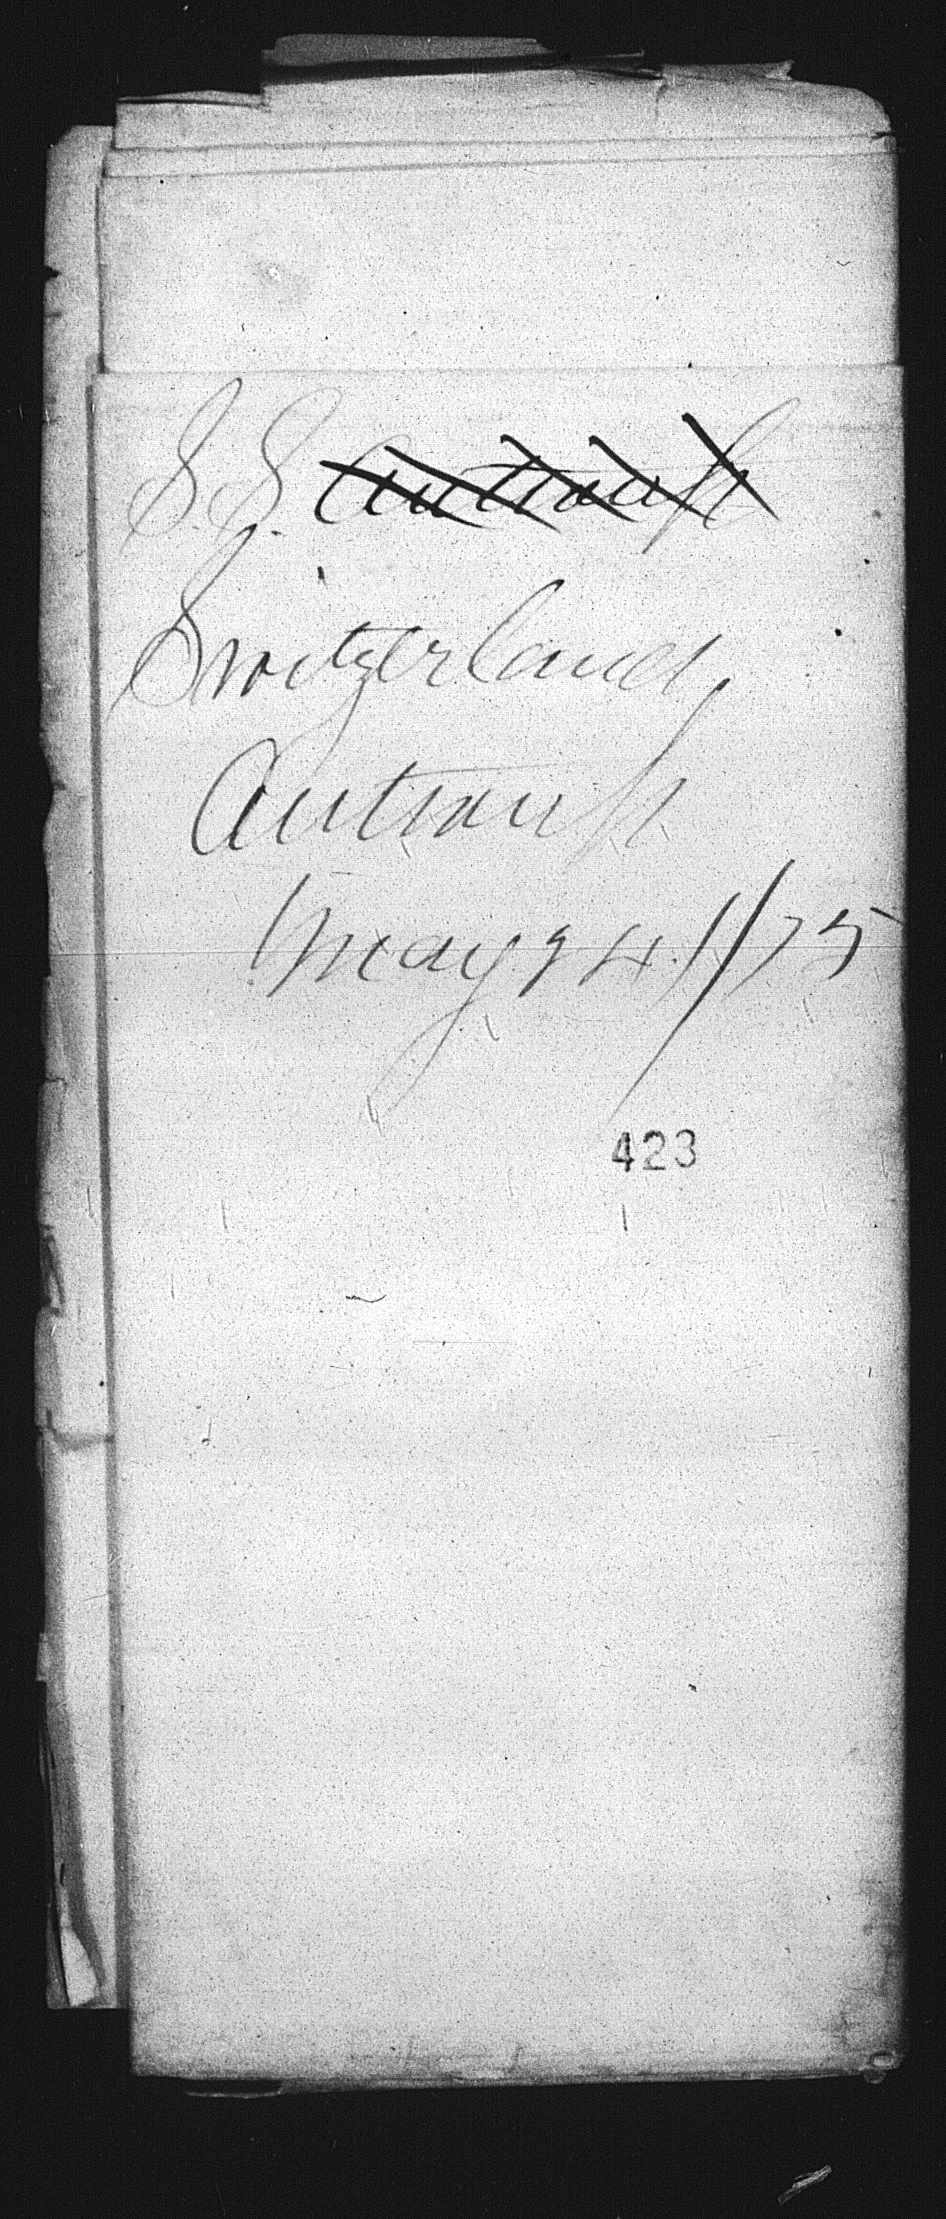 S.S.
Switzerland
Antwerp
May 24/75
423